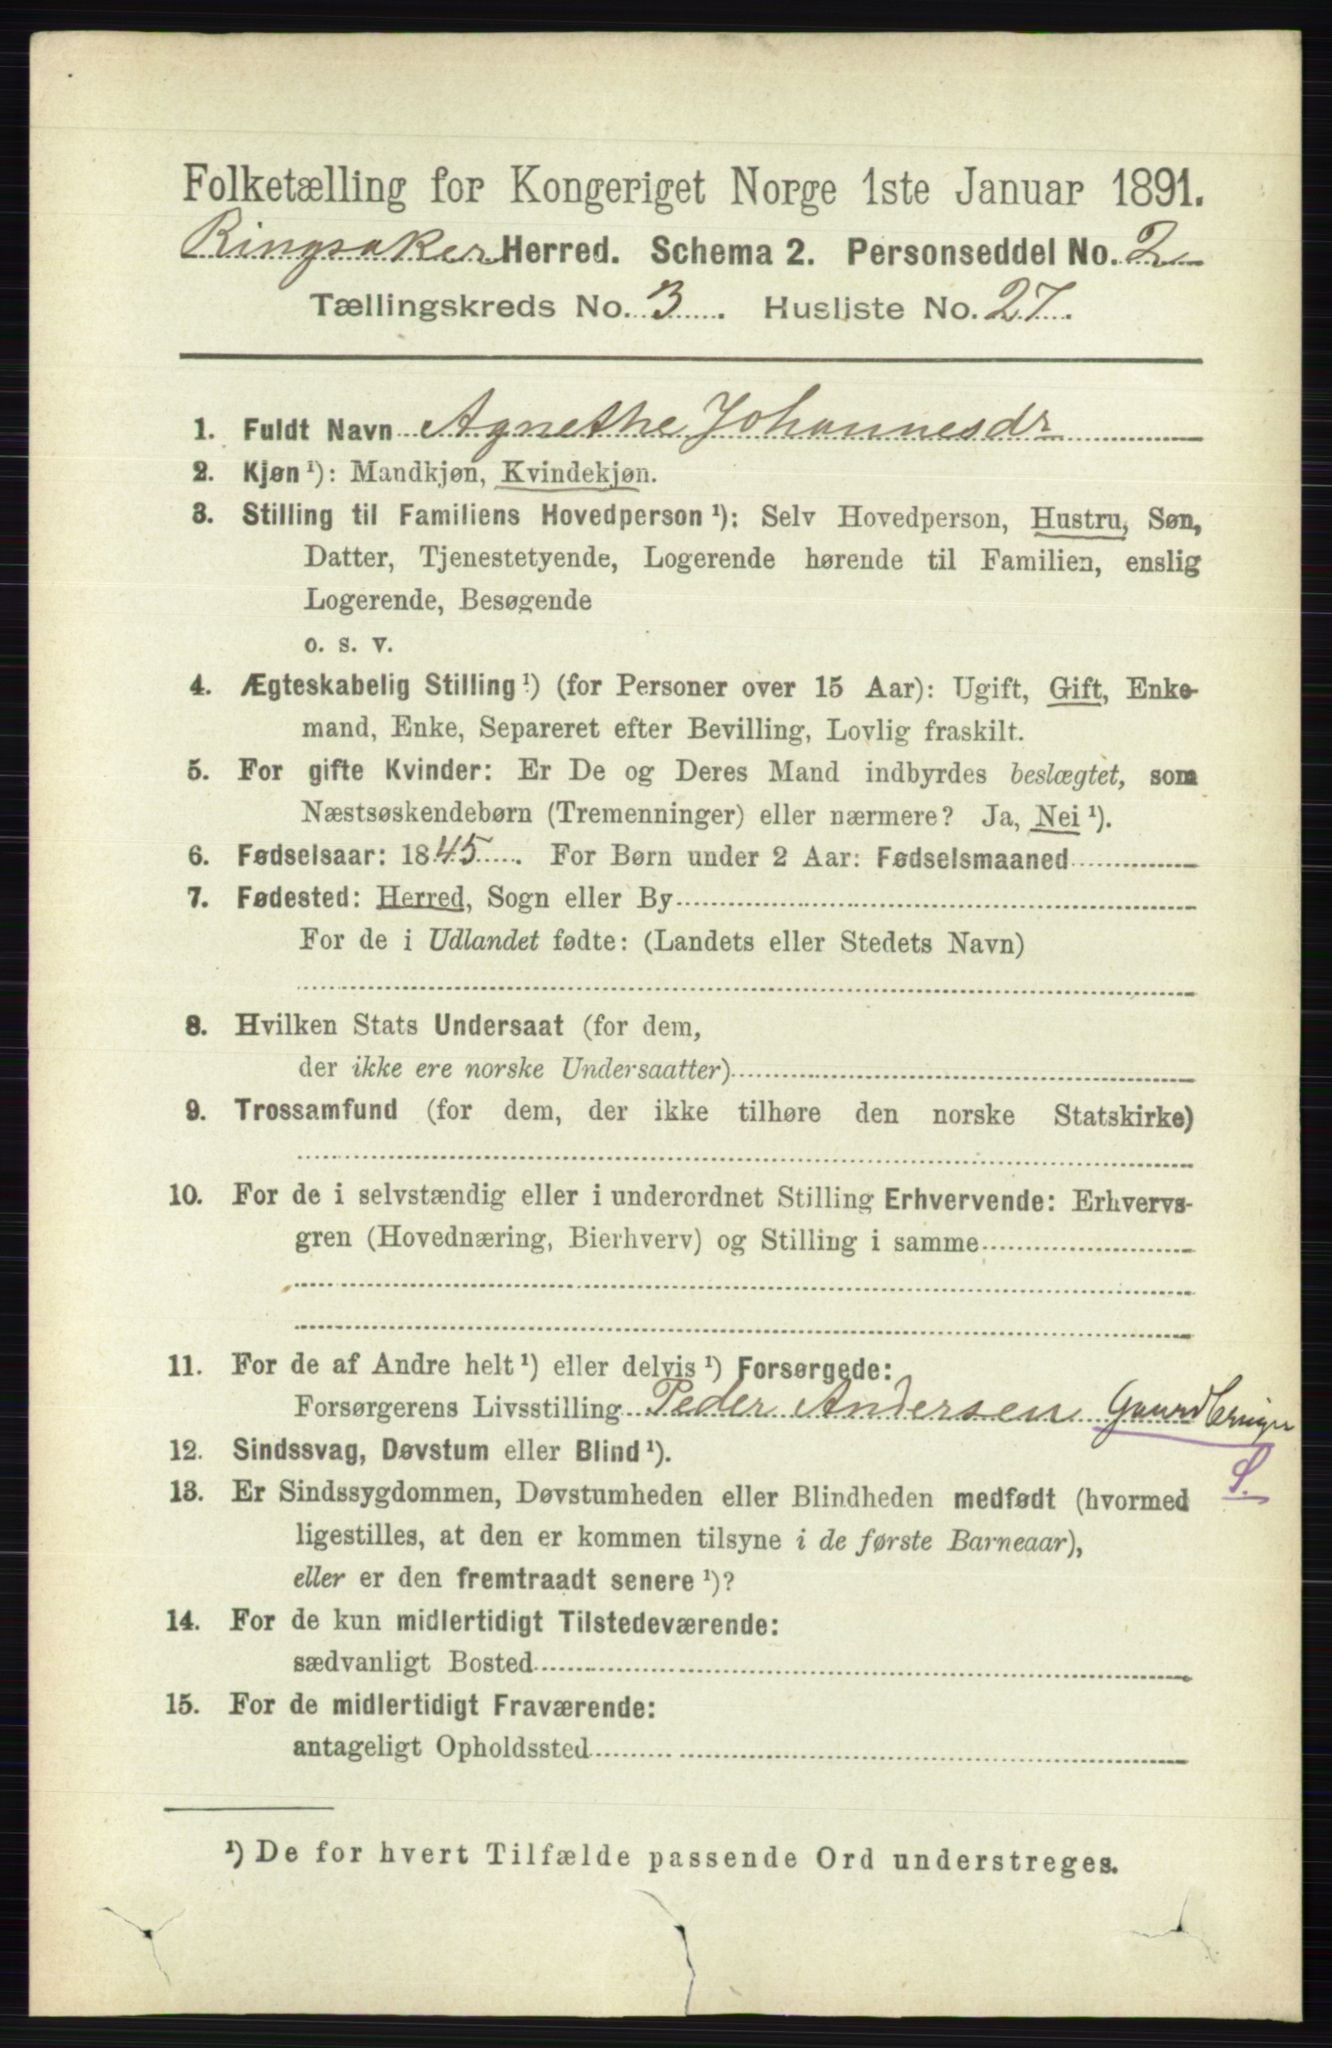 Folketælling for Kongeriget Norge 1ste Januar 1891.
Ringsaker Herred. Schema 2. Personseddel No. 2
Tællingskreds No. 3. Husliste No. 27.
1. Fuldt Navn Agnethe Johannesdr
2. Kjøn ¹): Mandkjøn, Kvindekjøn.
3. Stilling til Familiens Hovedperson ¹): Selv Hovedperson, Hustru, Søn,
Datter, Tjenestetyende, Logerende hørende til Familien, enslig
Logerende, Besøgende
o. s. v.
4. Ægteskabelig Stilling ¹) (for Personer over 15 Aar): Ugift, Gift, Enke-
mand, Enke, Separeret efter Bevilling, Lovlig fraskilt.
5. For gifte Kvinder: Er De og Deres Mand indbyrdes beslægtet, som
Næstsøskendebørn (Tremenninger) eller nærmere? Ja, Nei ¹).
6. Fødselsaar: 1845. For Børn under 2 Aar: Fødselsmaaned
7. Fødested: Herred, Sogn eller By
For de i Udlandet fødte: (Landets eller Stedets Navn)
8. Hvilken Stats Undersaat (for dem,
der ikke ere norske Undersaatter)
9. Trossamfund (for dem, der ikke tilhøre den norske Statskirke)
10. For de i selvstændig eller i underordnet Stilling Erhvervende: Erhvervs-
gren (Hovednæring, Bierhverv) og Stilling i samme
11. For de af Andre helt ¹) eller delvis ¹) Forsørgede:
Forsørgerens Livsstilling Peder Andersen Gaardbruger
S.
12. Sindssvag, Døvstum eller Blind ¹).
13. Er Sindssygdommen, Døvstumheden eller Blindheden medfødt (hvormed
ligestilles, at den er kommen tilsyne i de første Barneaar),
eller er den fremtraadt senere ¹)?
14. For de kun midlertidigt Tilstedeværende:
sædvanligt Bosted
15. For de midlertidigt Fraværende:
antageligt Opholdssted
¹) De for hvert Tilfælde passende Ord understreges.